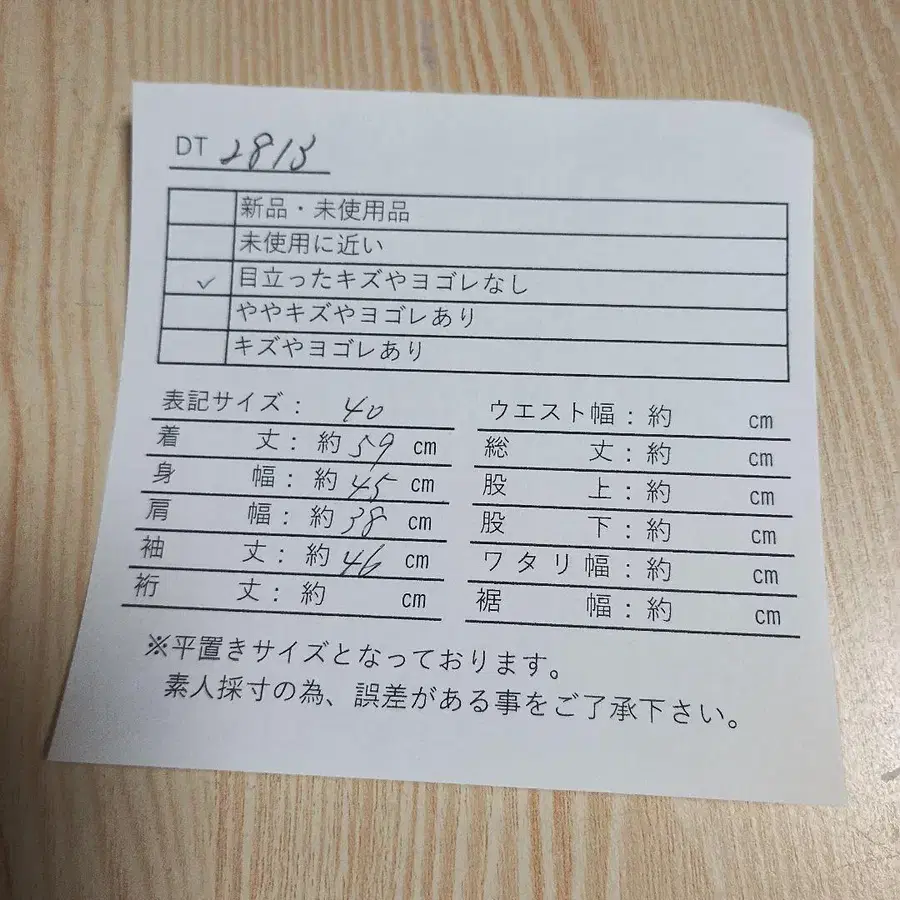 DT 2813
新品・未使用品
未使用に近い
✓ 目立ったキズやヨゴレなし
ややキズやヨゴレあり
キズやヨゴレあり
表記サイズ： 40
着丈：約59cm
身幅：約45cm
肩幅：約38cm
袖丈：約46cm
裄丈：約 cm
ウエスト幅：約 cm
総丈：約 cm
股上：約 cm
股下：約 cm
ワタリ幅：約 cm
裾幅：約 cm
※平置きサイズとなっております。
素人採寸の為、誤差がある事をご了承下さい。